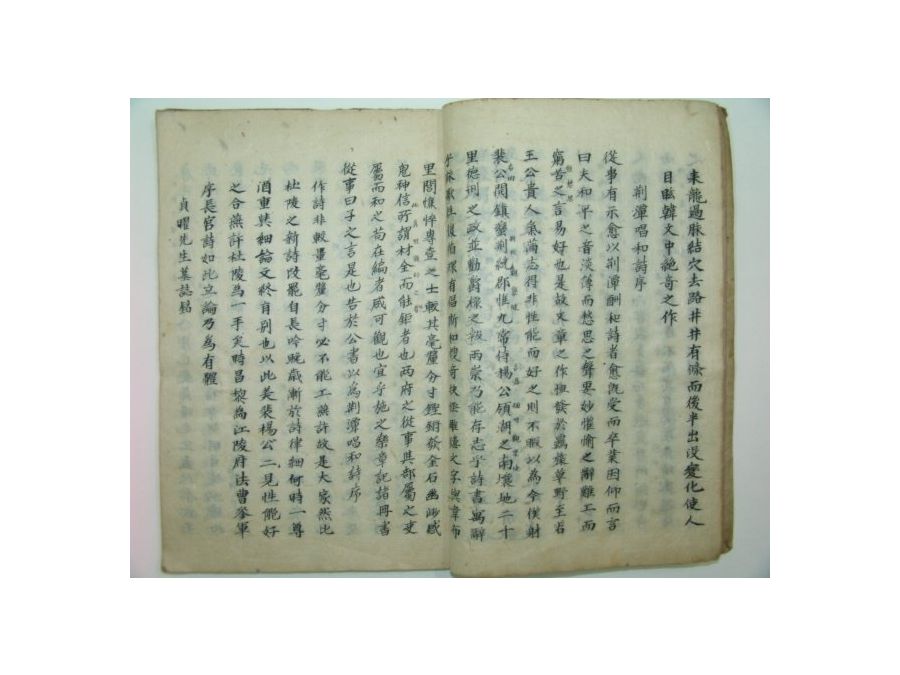 來龍過脉結穴去路井井有條而後半出沒變化使人
目眩韓文中絶奇之作
荆潭唱和詩序
從事有示愈以荆潭酬和詩者愈旣受而卒業因仰而言
曰夫和平之音淡薄而愁思之聲要妙懽愉之辭難工而
窮苦之言易好也是故文章之作恒發於羈旅草野至若
王公貴人氣滿志得非性能而好之則不暇以為今僕射
裴公開鎮蠻荆統郡惟九常侍楊公領湖之南壤地二十
里德刑之政並勸爵祿之報兩崇乃能存志乎詩書寓辭
乎咏歌往復循環有唱斯和搜奇抉怪雕鏤文字與韋布
里閭憔悴專壹之士較其毫釐分寸鏗鏘發金石幽眇感
鬼神信所謂材全而能鉅者也兩府之從事與部屬之吏
屬而和之苟在編者咸可觀也宜乎施之樂章記諸冊書
從事曰子之言是也告於公書以為荆潭唱和詩序
作詩非較量毫釐分寸必不能工燕許故是大家然比
杜陵之新詩改罷自長吟晩歲漸於詩律細何時一尊
酒重與細論文終有別也以此美裴楊公二見性能好
之合燕許杜陵為一手矣時昌黎為江陵府法曹參軍
序長官詩如此立論乃為有軆
貞曜先生墓誌銘